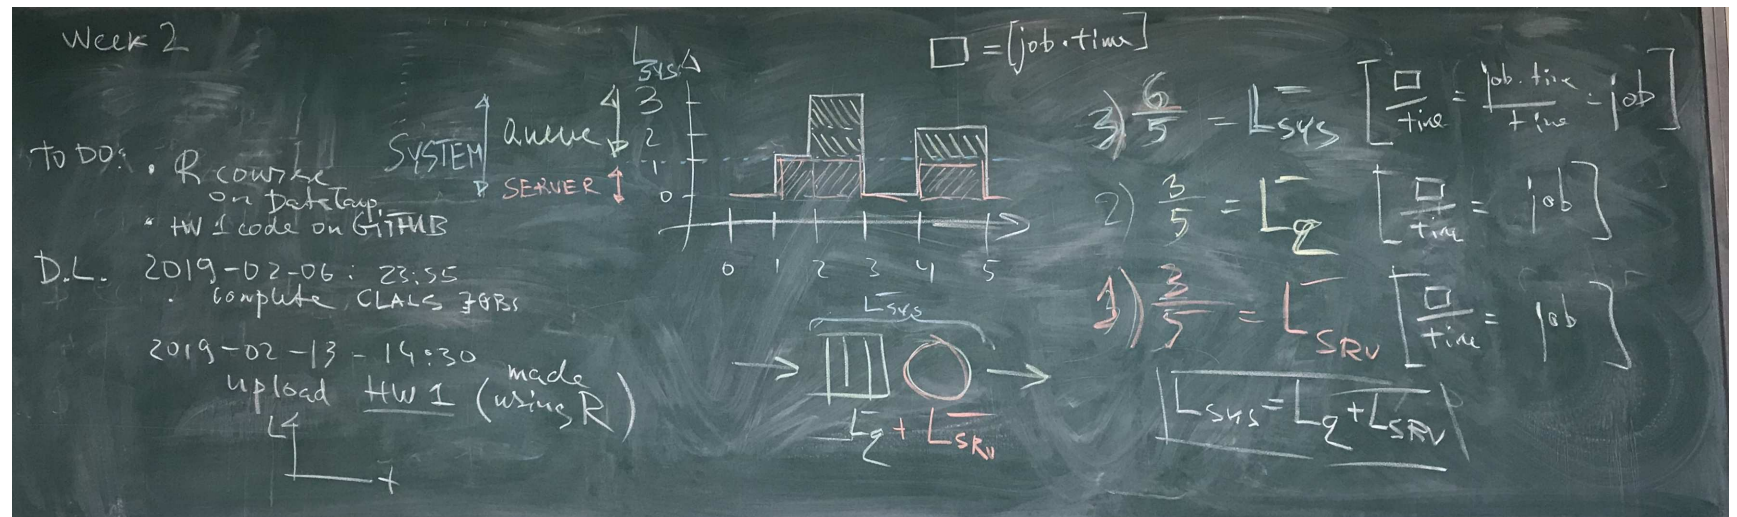 Week 2
TO DO: • R course
on DataCamp
• HW 1 code on GITHUB
D.L. 2019-02-06: 23:55
• complete CLALS JOBS
2019-02-13 - 14:30
upload HW 1 (made using R)
L
t
SYSTEM
Queue
SERVER
L SYS
3
2
1
0
0 1 2 3 4 5
L sys
Lq + L SRV
□ = [job·time]
3) 6/5 = L SYS [□/time = job·time/time = job]
2) 3/5 = Lq [□/time = job]
1) 3/5 = L SRV [□/time = job]
L sys = Lq + L SRV